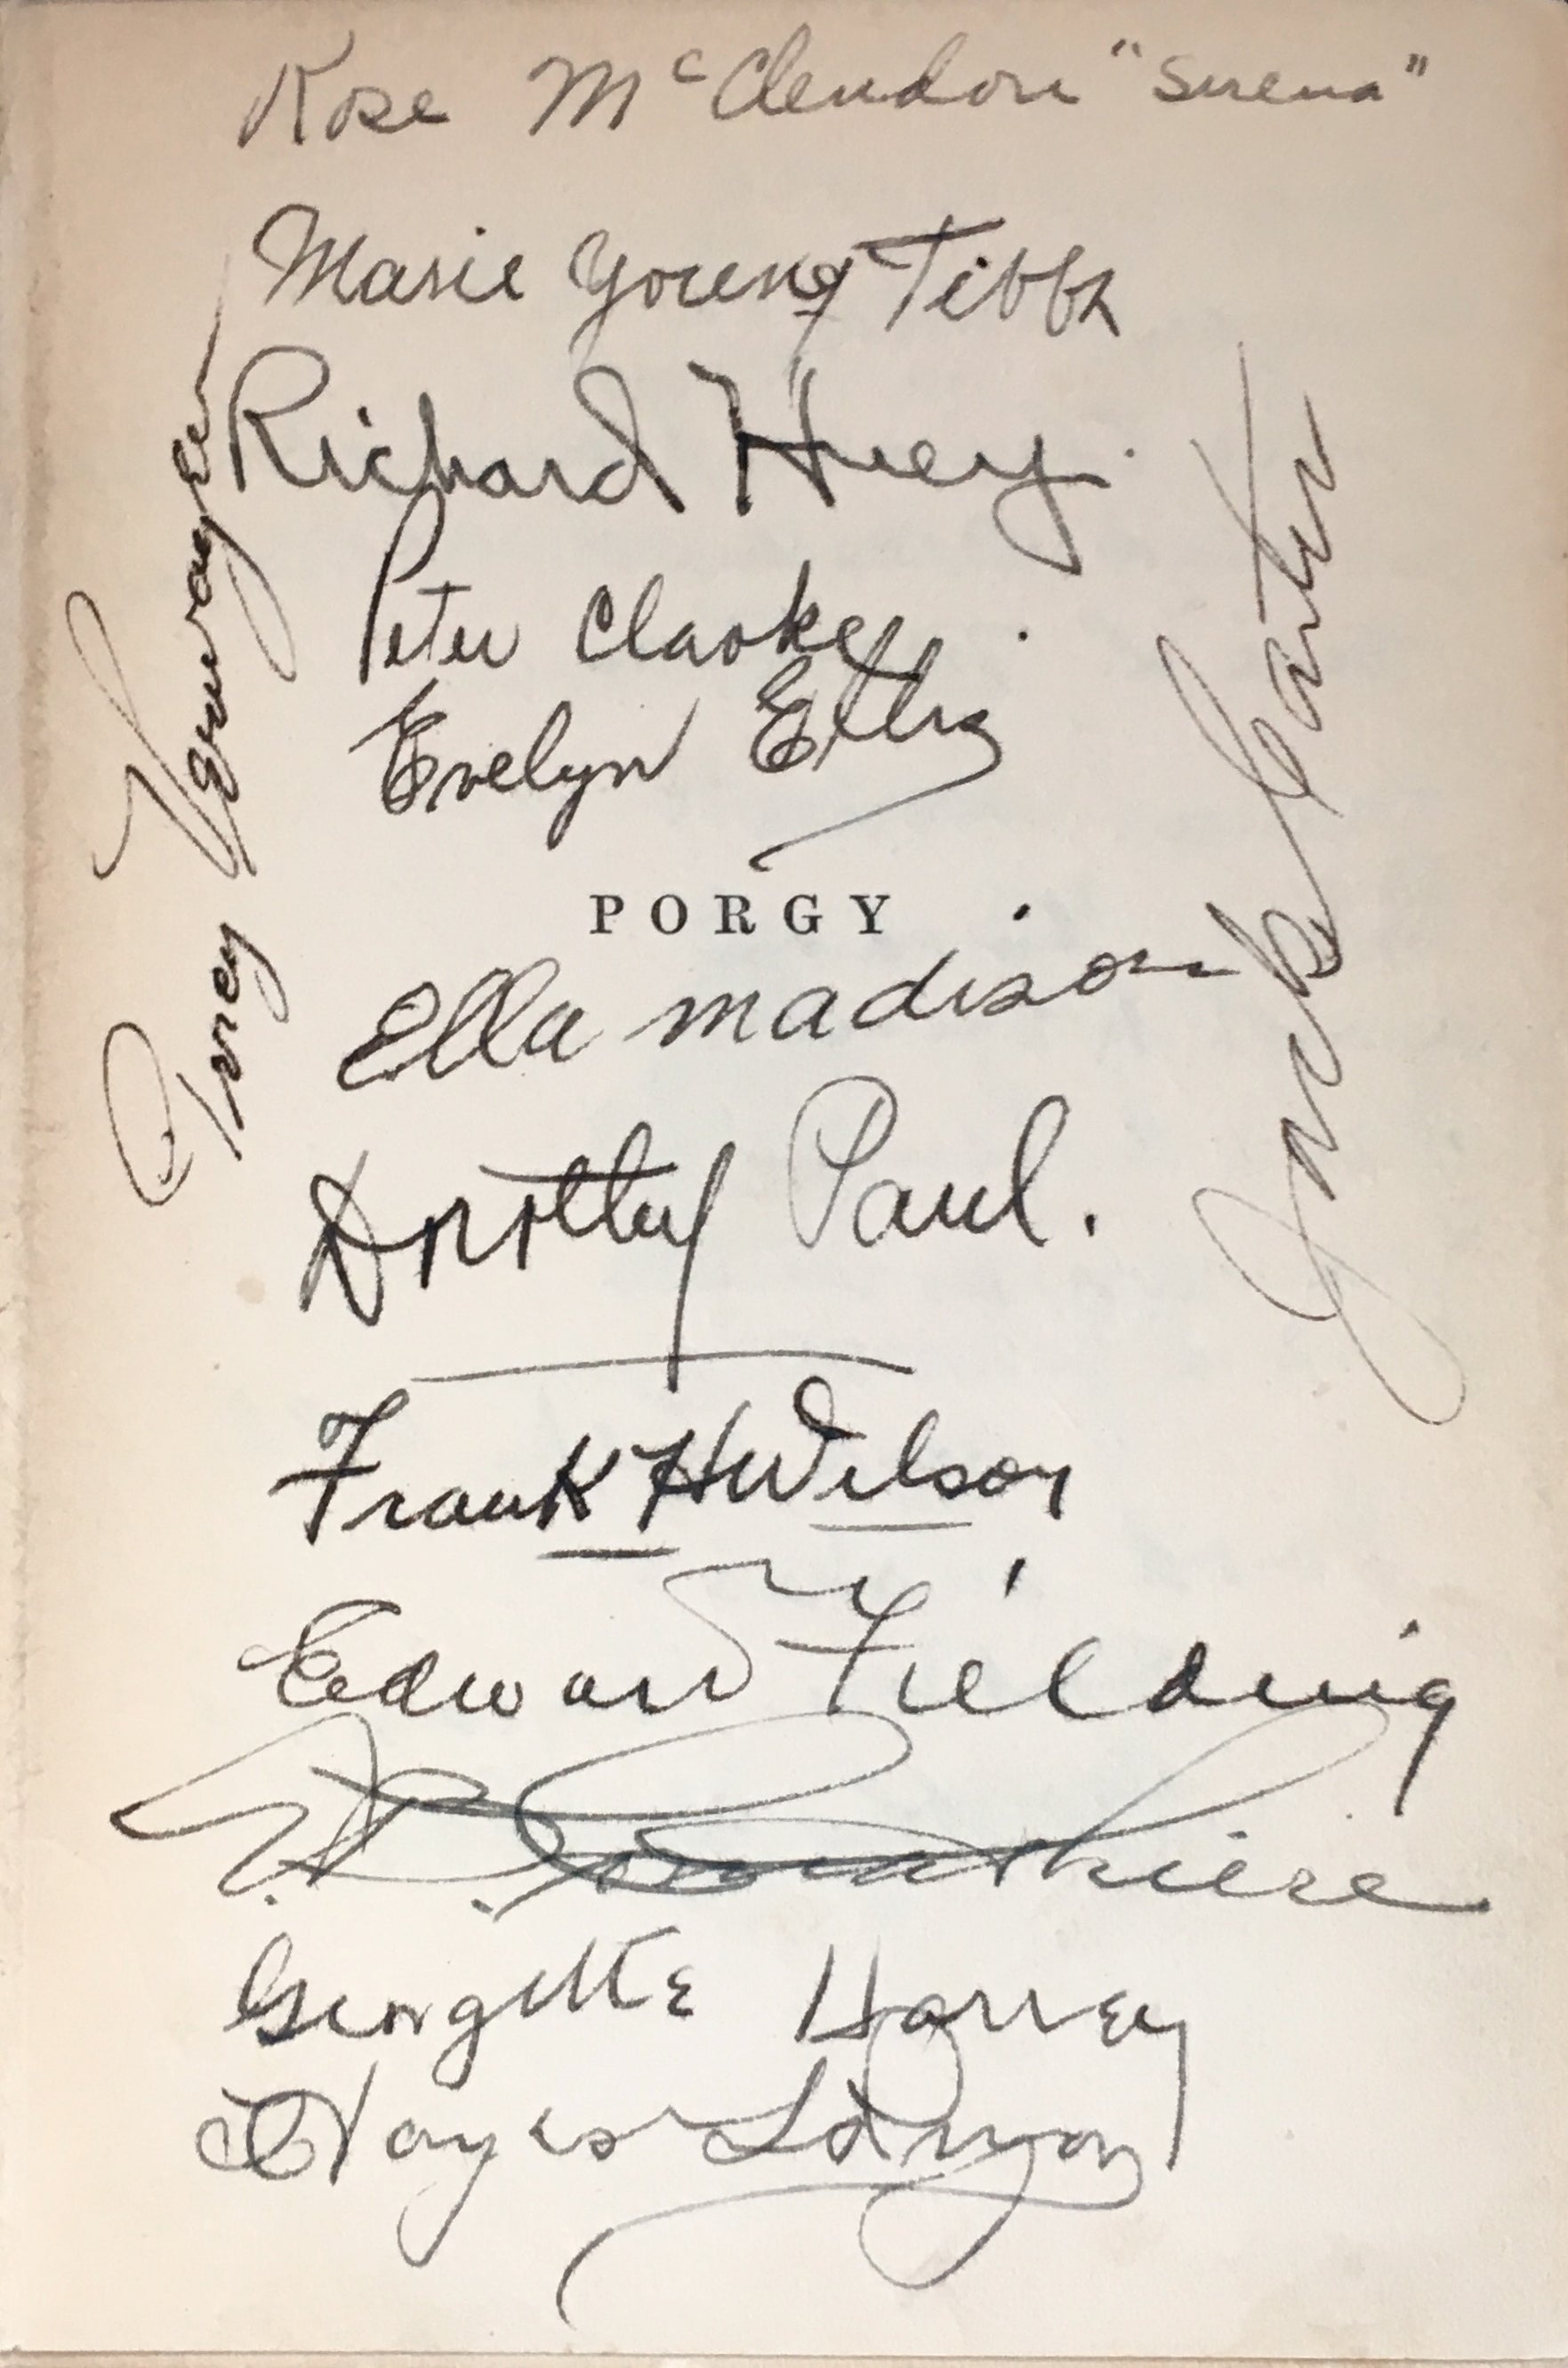 Rose McClendon "Serena"
Marie Young Tibbs
Richard Huey.
Peter Clarke
Evelyn Ellis
PORGY
Ella Madison
Dorothy Paul.
Frank H Wilson
Edward Fielding
Georgette Harvey
Hayes Pryor
Percy Verwayen
Jack Carter